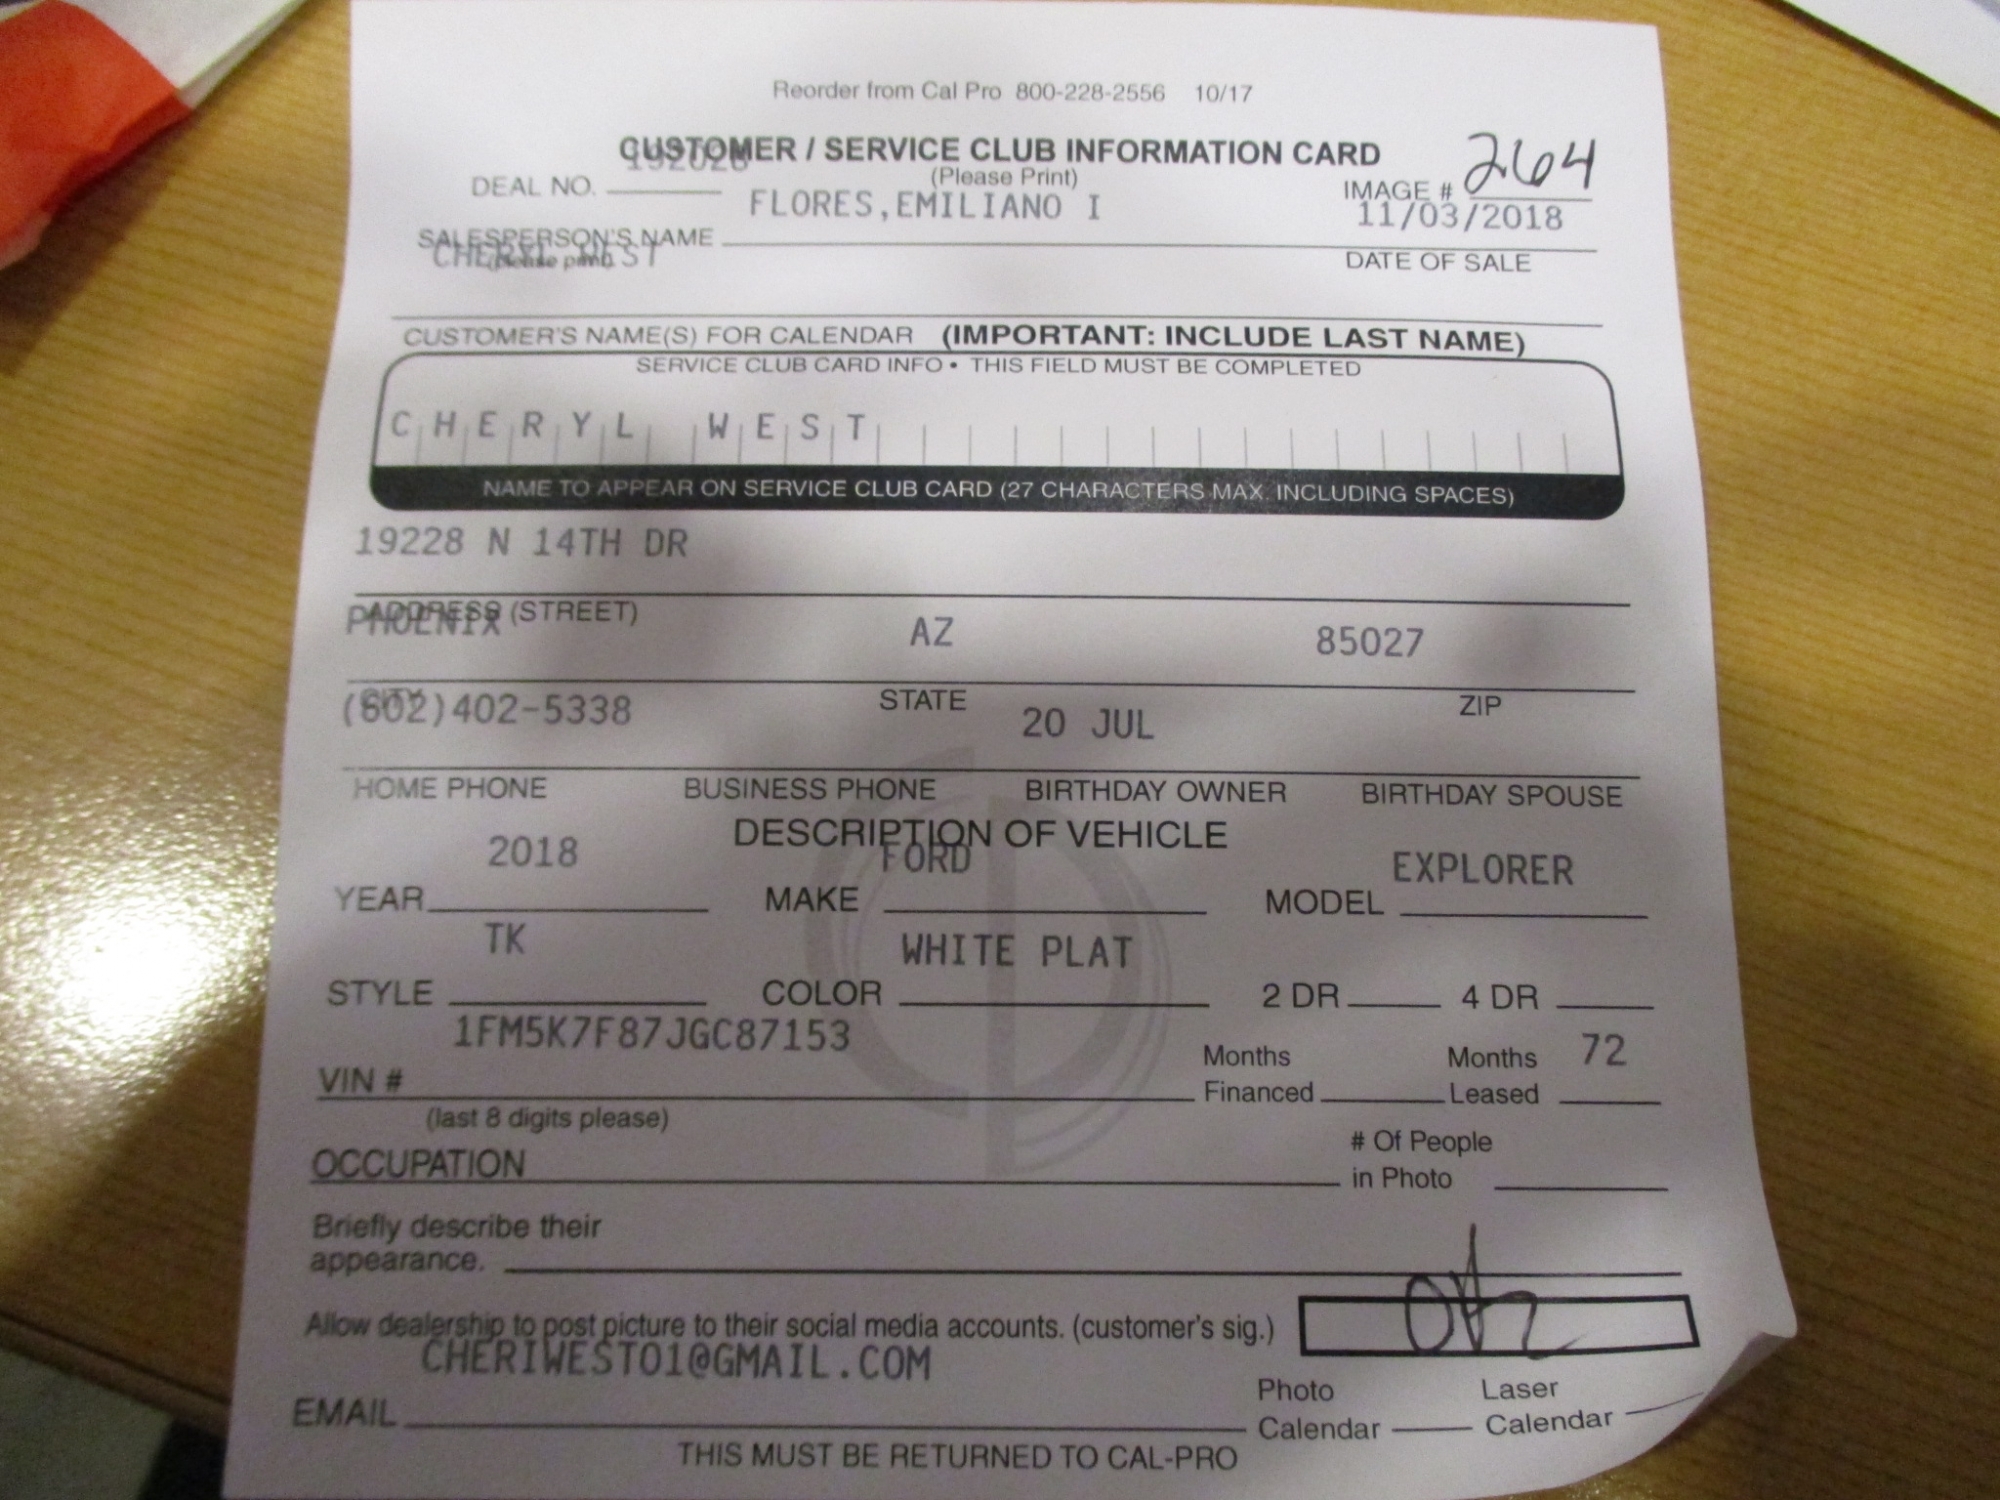 Reorder from Cal Pro 800-228-2556 10/17
CUSTOMER / SERVICE CLUB INFORMATION CARD
(Please Print)
DEAL NO. 192028
IMAGE # 264
FLORES,EMILIANO I
11/03/2018
SALESPERSON'S NAME
(please print)
DATE OF SALE
CHERYL WEST
CUSTOMER'S NAME(S) FOR CALENDAR (IMPORTANT: INCLUDE LAST NAME)
SERVICE CLUB CARD INFO • THIS FIELD MUST BE COMPLETED
CHERYL WEST
NAME TO APPEAR ON SERVICE CLUB CARD (27 CHARACTERS MAX. INCLUDING SPACES)
19228 N 14TH DR
ADDRESS (STREET)
PHOENIX AZ 85027
CITY STATE ZIP
(602)402-5338 20 JUL
HOME PHONE BUSINESS PHONE BIRTHDAY OWNER BIRTHDAY SPOUSE
DESCRIPTION OF VEHICLE
2018 FORD EXPLORER
YEAR MAKE MODEL
TK WHITE PLAT
STYLE COLOR 2 DR 4 DR
1FM5K7F87JGC87153
Months Months 72
VIN # Financed Leased
(last 8 digits please)
# Of People
OCCUPATION in Photo
Briefly describe their
appearance.
Allow dealership to post picture to their social media accounts. (customer's sig.)
CHERIWEST01@GMAIL.COM
Photo Laser
EMAIL Calendar Calendar
THIS MUST BE RETURNED TO CAL-PRO